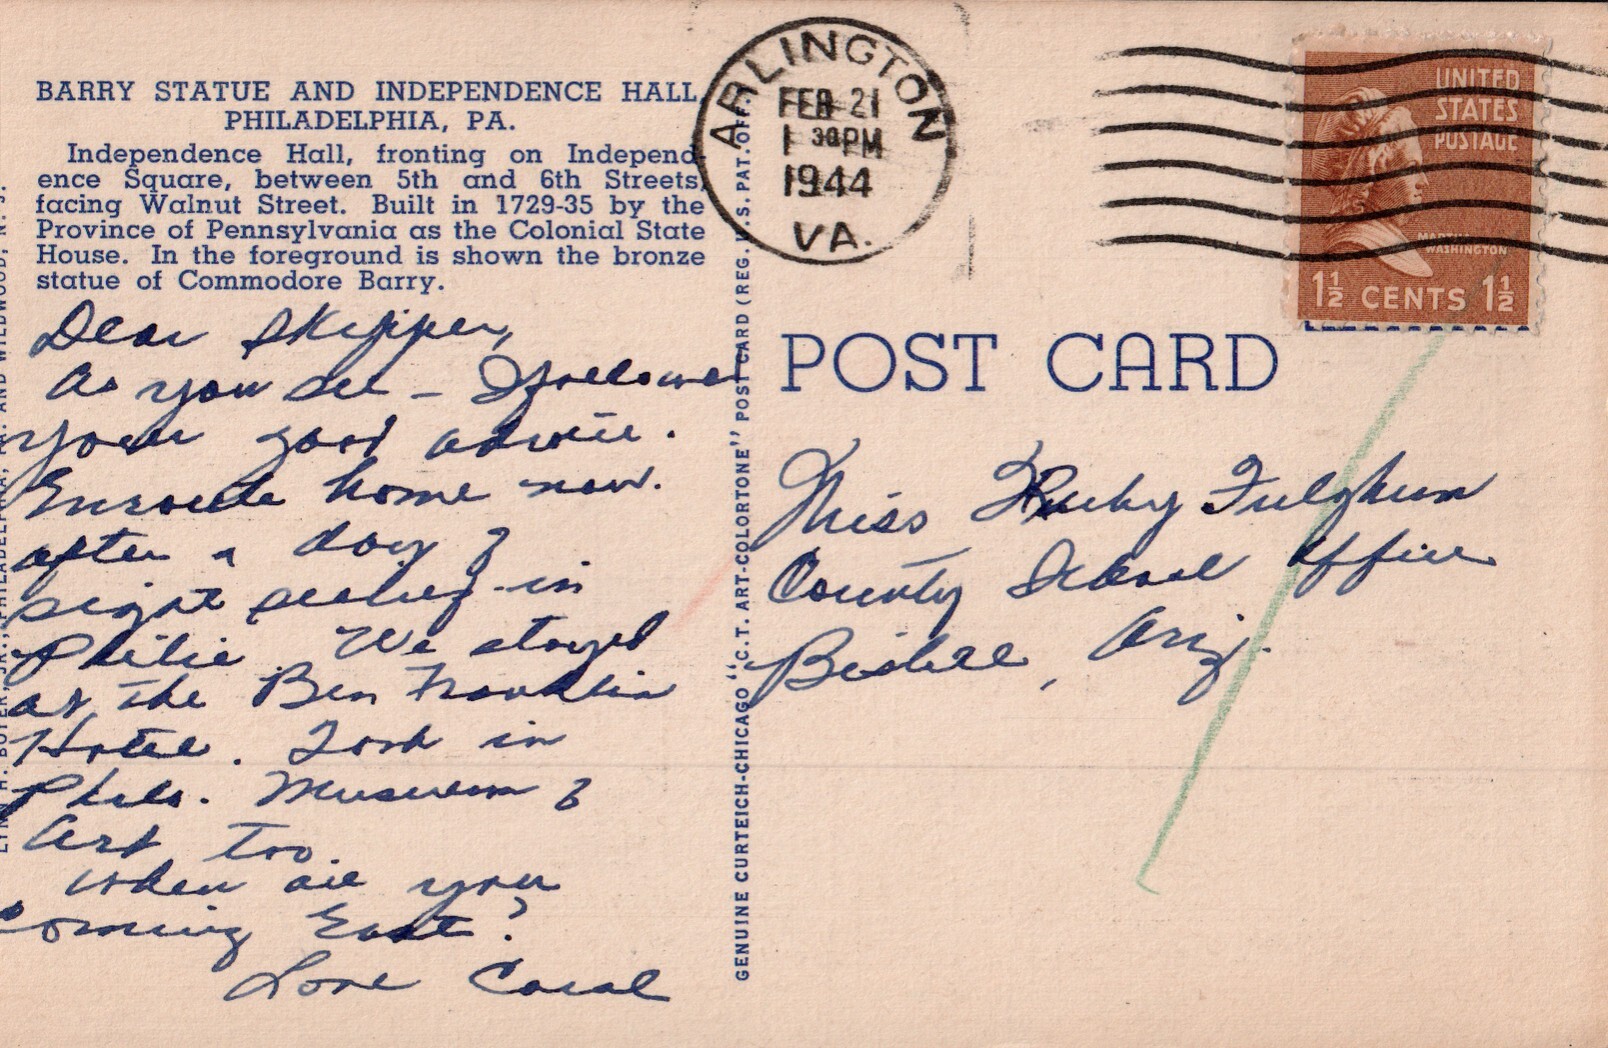 BARRY STATUE AND INDEPENDENCE HALL,
PHILADELPHIA, PA.
Independence Hall, fronting on Independ-
ence Square, between 5th and 6th Streets,
facing Walnut Street. Built in 1729-35 by the
Province of Pennsylvania as the Colonial State
House. In the foreground is shown the bronze
statue of Commodore Barry.
Dear Skipper,
As you see - I followed
your good advice.
Enroute home now.
after a day of
sight seeing in
Philie. We stayed
at the Ben Franklin
Hotel. Took in
Phila. Museum of
Art too.
When are you
Coming East?
Love Coral
GENUINE CURTEICH-CHICAGO "C.T. ART-COLORTONE" POST CARD (REG. U.S. PAT. OFF.)
ARLINGTON
FEB 21
1 30 PM
1944
VA.
UNITED
STATES
POSTAGE
MARTHA
WASHINGTON
1½ CENTS 1½
POST CARD
Miss Ruby Fulghum
County School Office
Bisbee, Ariz.